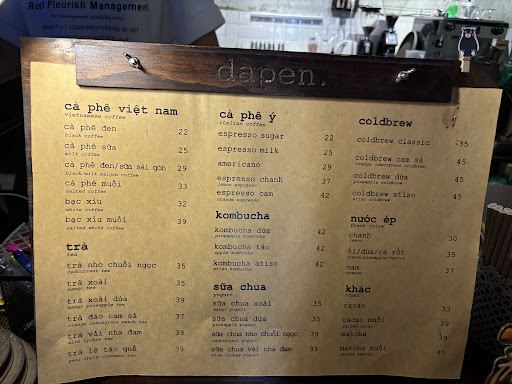 Root Flourish Management
dapen.
cà phê việt nam
vietnamese coffee
cà phê đen 22
black coffee
cà phê sữa 25
milk coffee
cà phê đen/sữa sài gòn 29
black/milk saigon coffee
cà phê muối 33
salted coffee
bạc xỉu 32
white coffee
bạc xỉu muối 39
salted white coffee
trà
tea
trà nho chuỗi ngọc 35
redcurrant tea
trà xoài 35
mango tea
trà xoài dứa 39
mango pineapple tea
trà đào cam sả 37
orange lemongrass peach tea
trà vải nha đam 39
aloe lychee tea
trà lê táo quế 39
pear apple cinnamon tea
cà phê ý
italian coffee
espresso sugar 22
espresso milk 25
americano 29
espresso chanh 37
lemon espresso
espresso cam 42
orange espresso
kombucha
kombucha dứa 42
pineapple kombucha
kombucha táo 42
apple kombucha
kombucha atiso 42
atiso kombucha
sữa chua
yogurt
sữa chua xoài 35
mango yogurt
sữa chua dứa 35
pineapple yogurt
sữa chua nho chuỗi ngọc 35
redcurrant yogurt
sữa chua vải nha đam 39
aloe lychee yogurt
coldbrew
coldbrew classic 35
coldbrew cam sả 45
orange lemongrass coldbrew
coldbrew dứa 45
pineapple coldbrew
coldbrew atiso 45
atiso coldbrew
nước ép
fresh juice
chanh 30
lemon
ổi/dứa/cà rốt 35
guava/pineapple/carrot
cam 37
orange
khác
other
cacao 33
cacao muối 39
salted cacao
matcha 39
matcha muối 45
salted matcha